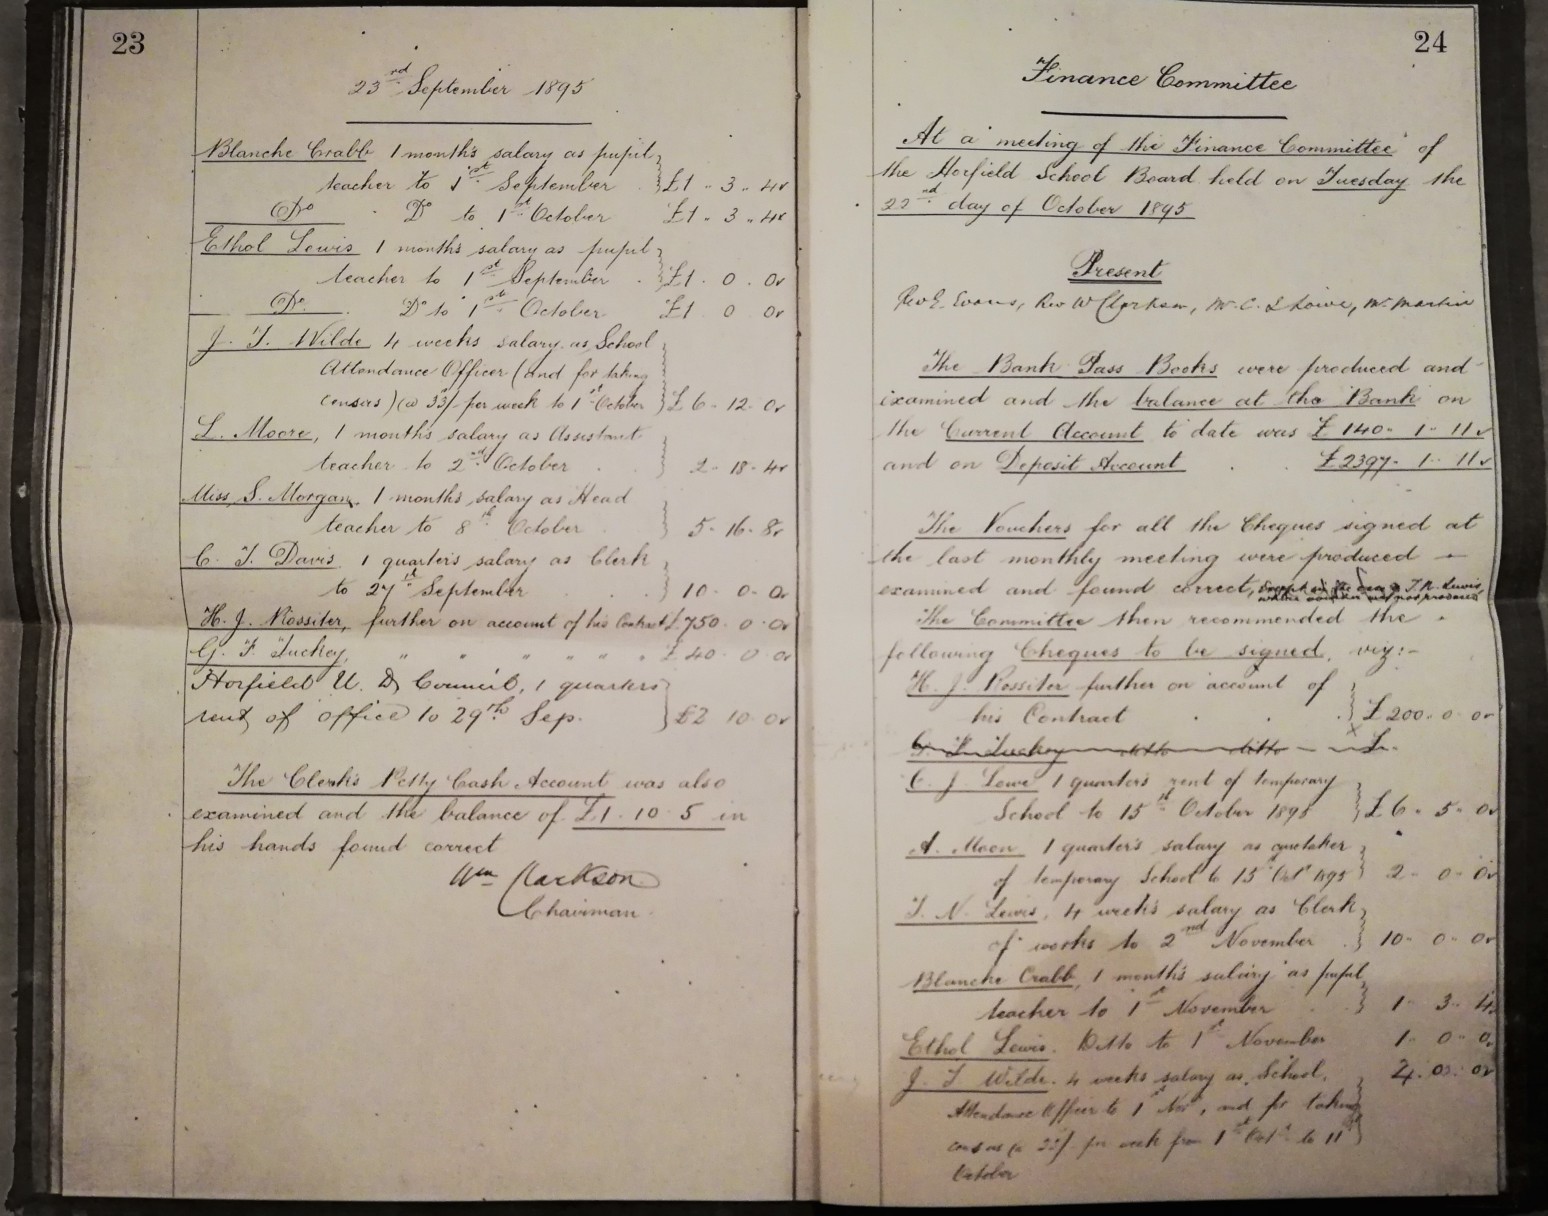 23
23rd September 1895
Blanche Crabb 1 month's salary as pupil
teacher to 1st September £1 . 3 . 4
Do Do to 1st October £1 . 3 . 4
Ethel Lewis 1 months salary as pupil
teacher to 1st September . £1 . 0 . 0
Do. Do to 1st October £1 0 0
J. T. Wilde 4 weeks salary as School
Attendance Officer (and for taking
census) (@ 33/- per week to 1st October £6 - 12 - 0
L. Moore, 1 month's salary as Assistant
teacher to 2nd October . . 2 - 18 - 4
Miss S. Morgan. 1 months salary as Head
teacher to 8th October . 5 - 16 - 8
C. J. Davis 1 quarter's salary as Clerk
to 27th September . . . 10 - 0 - 0
H. J. Rossiter, further on account of his Contract £750 . 0 . 0
G. F. Tuckey, " " " " " " £40 . 0 . 0
Horfield U. D. Council, 1 quarters
rent of office to 29th Sep. £2 10 0
The Clerk's Petty Cash Account was also
examined and the balance of £1 . 10 5 in
his hands found correct
Wm Clarkson
Chairman
24
Finance Committee
At a meeting of the Finance Committee of
the Horfield School Board held on Tuesday the
22nd day of October 1895
Present
Rev E. Evans, Rev W Clarkson, Mr C. J Lowe, Mr Martin
The Bank Pass Books were produced and
examined and the balance at the Bank on
the Current Account to date was £140 - 1 - 11
and on Deposit Account . . £2397 - 1 - 11
The Vouchers for all the Cheques signed at
the last monthly meeting were produced -
examined and found correct, except in the case of T. N. Lewis
whose voucher was not produced
The Committee then recommended the -
following Cheques to be signed, viz:-
H. J. Rossiter further on account of
his Contract . . £200 . 0 . 0
G. F. Tuckey ditto ditto - - £
C. J. Lowe 1 quarter's rent of temporary
School to 15th October 1895 £6 - 5 - 0
A. Moon 1 quarter's salary as caretaker
of temporary School to 15 Oct 1895 2 - 0 - 0
T. N. Lewis, 4 week's salary as Clerk
of works to 2nd November . 10 - 0 - 0
Blanche Crabb, 1 month's salary as pupil
teacher to 1st November . . 1 - 3 - 4
Ethel Lewis. Ditto to 1st November 1 - 0 - 0
J. T Wilde. 4 weeks salary as School 4 . 0 . 0
Attendance Officer to 1st Nov, and for taking
census @ 33/- per week from 1st Oct to 11th
October